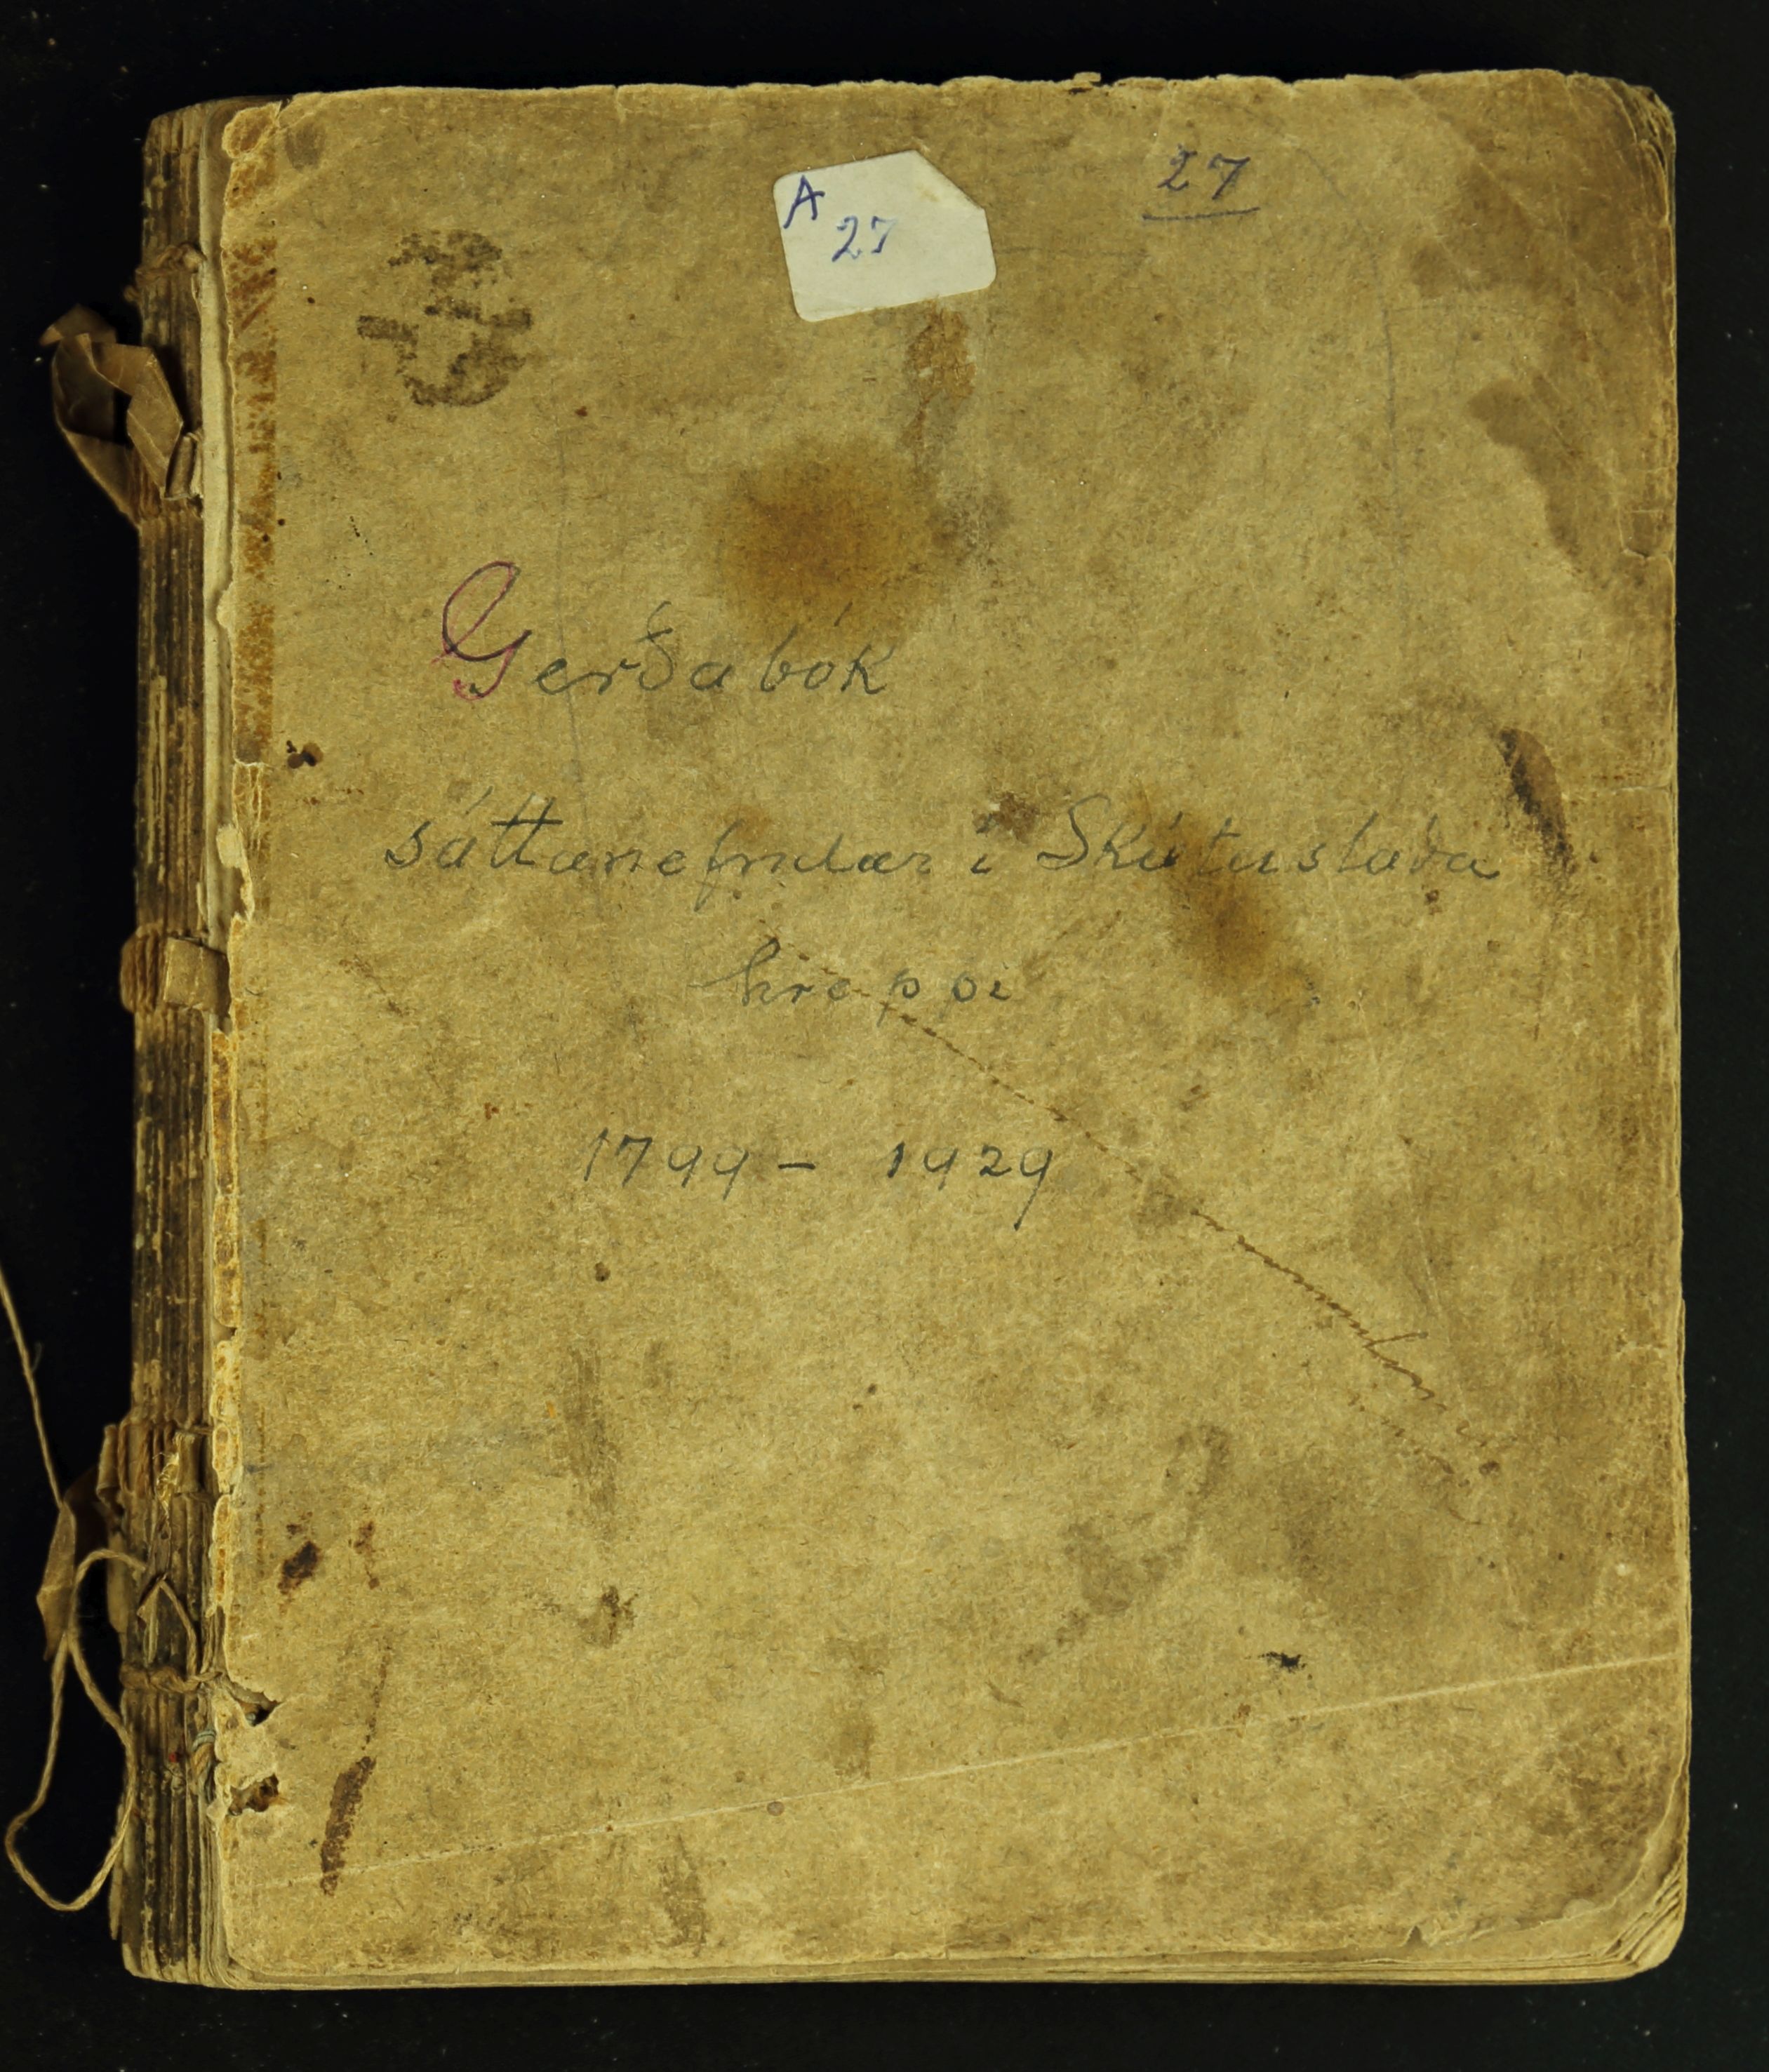 A
27
27
Gerðabók
sáttanefndar í Skútustaða
hreppi
1799 - 1929